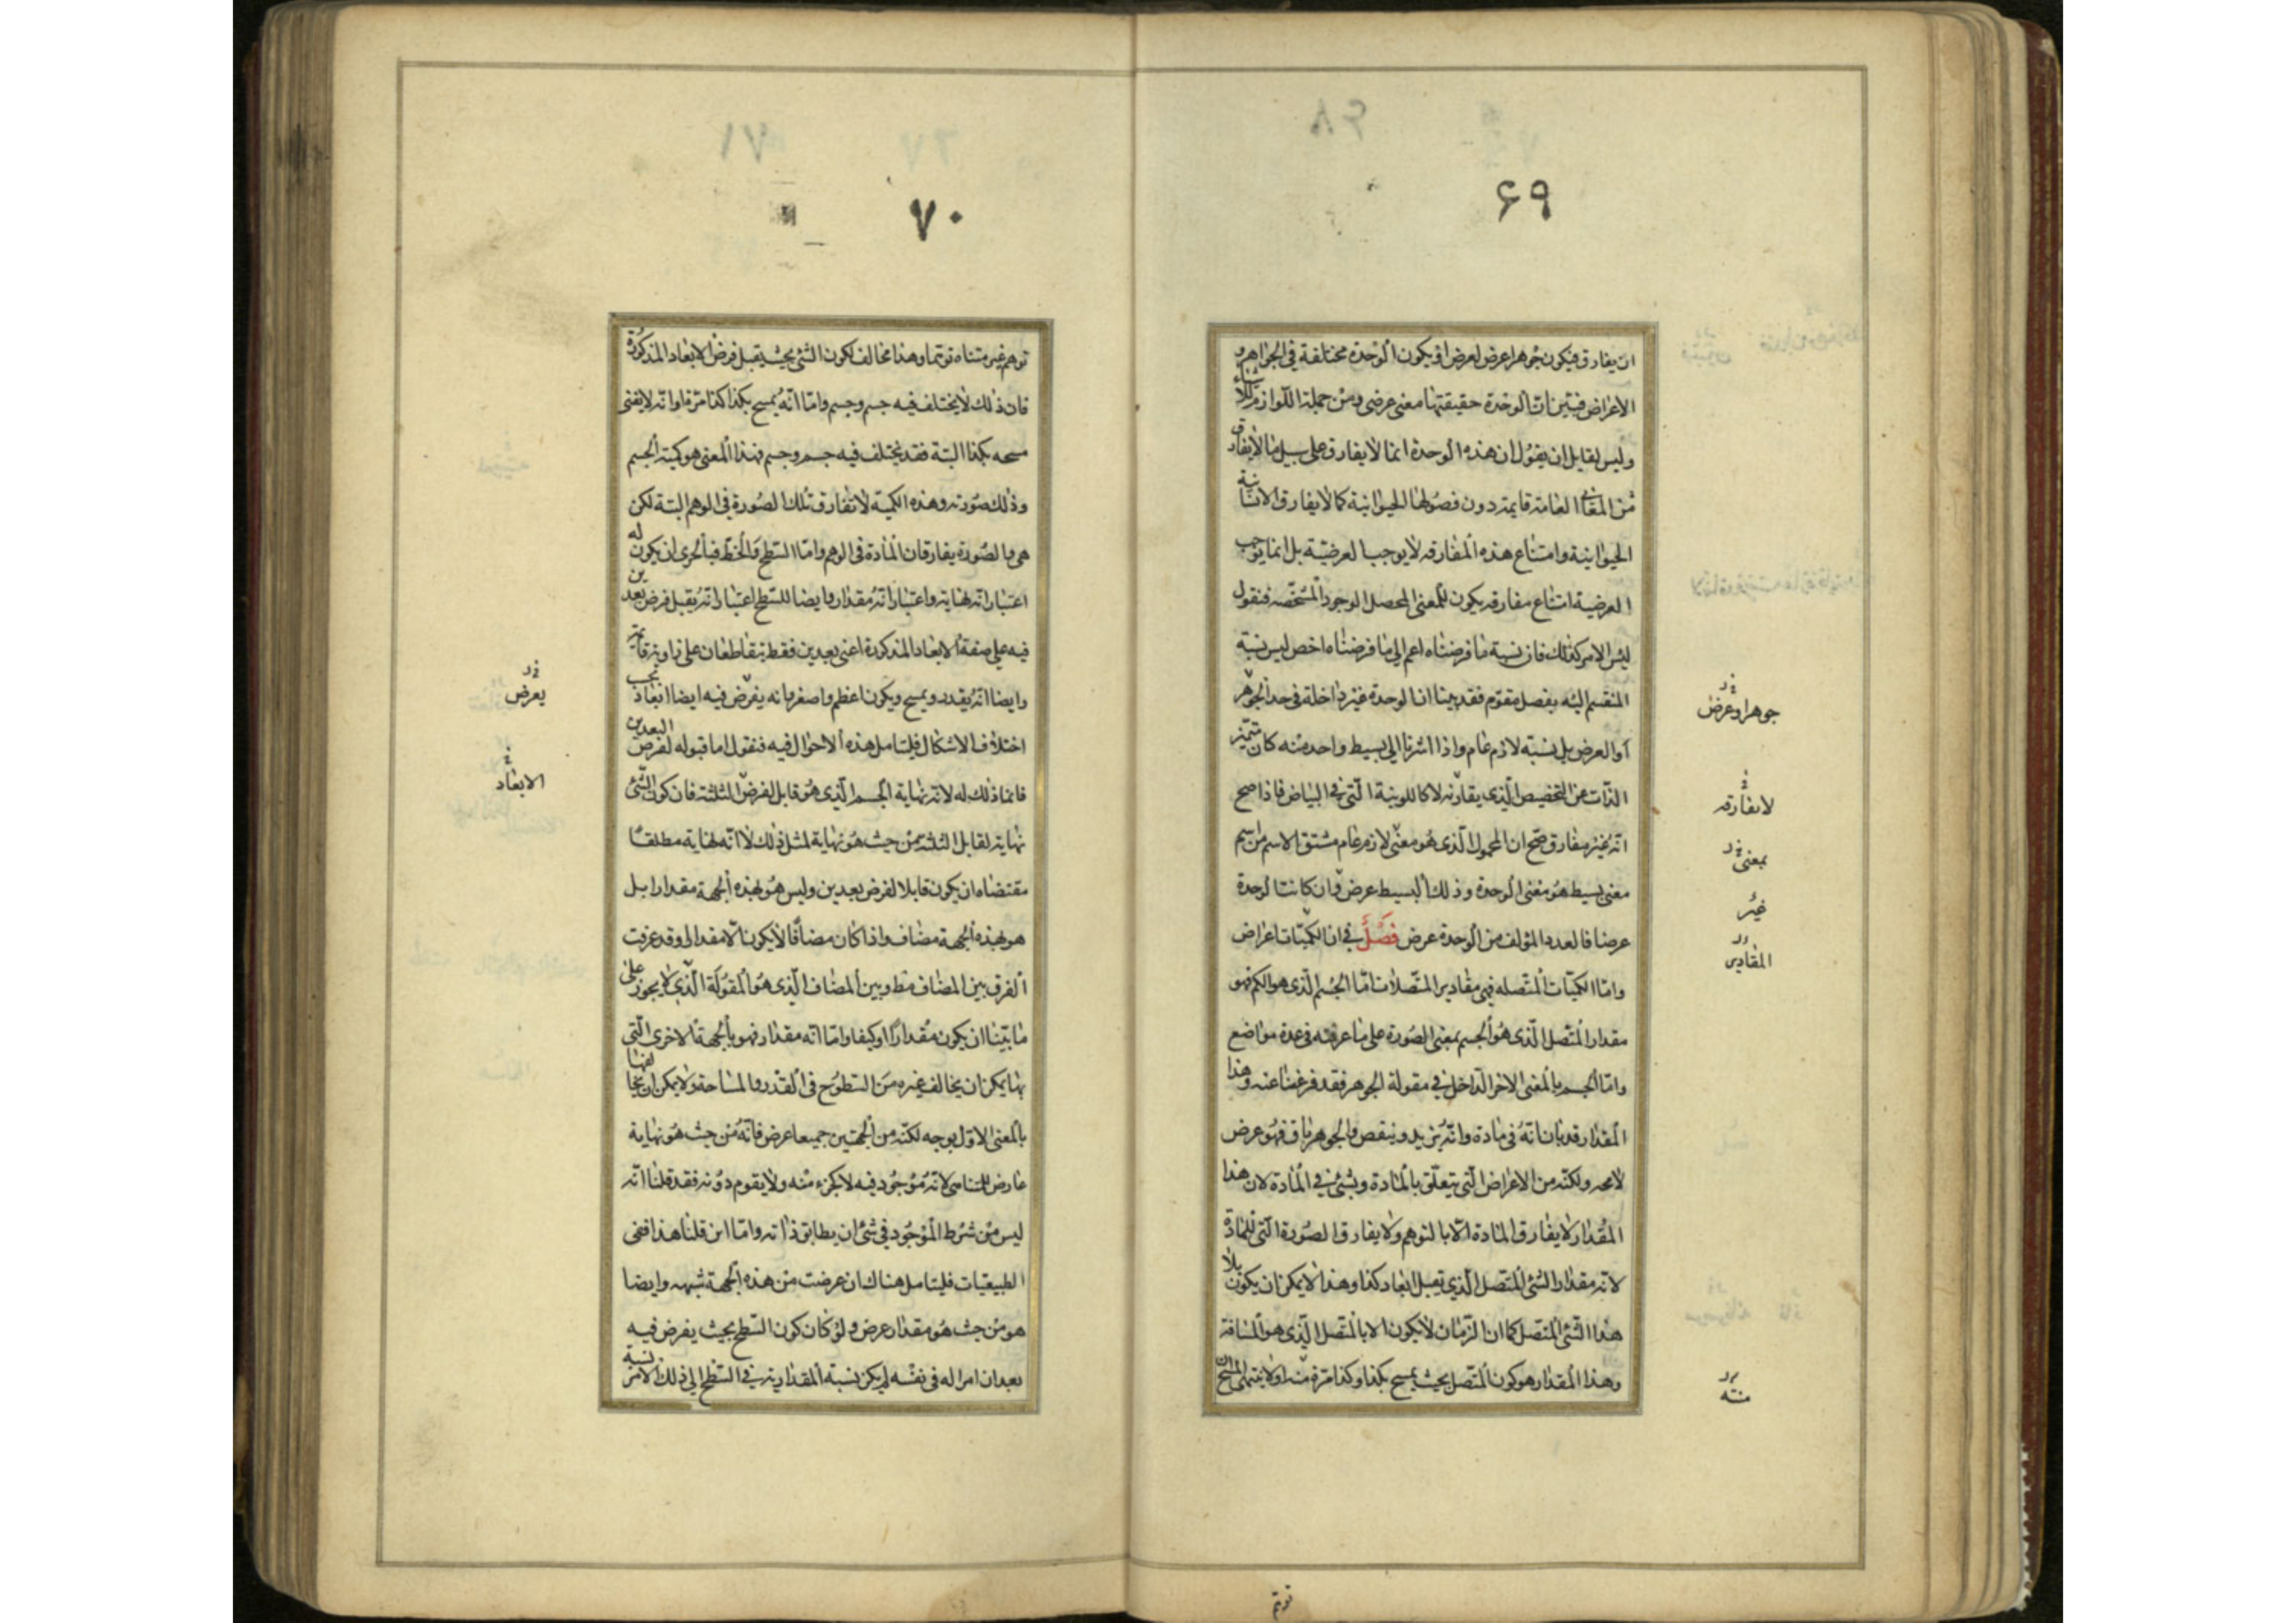 ۶۹
ان يفارق فيكون جوهرا عرض لعرض اذ يكون الوحدة مختلفة فى الجواهر و
الاعراض فبيّن ان الوحدة حقيقتها معنى عرضى ومن جملة اللوازم للاشياء
وليس لقايل ان يقول ان هذه الوحدة انما لا يفارق على سبيل ما لا يفارق
من المعانى العامة قايمة دون فصولها الحيوانية كما لا يفارق الانسانية
الحيوانية وامتناع هذه المفارقه لا يوجب العرضيّة بل انما يوجب
العرضية امتناع مفارقه يكون للمعنى المحصل الوجود المشخّصه فنقول
ليس الامر كذلك فان نسبة ما فرضناه اعم الى ما فرضناه اخص ليس نسبة
المنقسم اليه بفصل مقوّم فقد بينا ان الوحدة غير داخلة فى حد الجوهر
او العرض بل نسبة لازم عام واذا اشرنا الى بسيط واحد منه كان متميّز
الذات عن التخصيص الّذى يقارنه لا كاللونية الّتى فى البياض فاذا صح
انه غير مفارق صح ان المحمول الّذى هو معنى لازم عام مشتق الاسم من اسم
معنى بسيط هو معنى الوحدة وذلك البسيط عرض وان كانت الوحدة
عرضا فالعدد المؤلف من الوحدة عرض فصل فى ان الكميّات اعراض
وامّا الكميّات المتصله فهى مقادير المتّصلات امّا الجسم الّذى هو الكم فهو
مقدار المتّصل الّذى هو الجسم بمعنى الصورة على ما عرفته فى عدة مواضع
وامّا الجسم بالمعنى الاخر الداخل فى مقولة الجوهر فقد فرغنا عنه وهذا
المقدار قد بان انّه فى مادة وانّه يزيد وينقص والجوهر باق فهو عرض
لا محه ولكنّه من الاعراض الّتى يتعلّق بالمادة وبشئ فى المادة لان هذا
المقدار لا يفارق المادة الّا بالتوهم ولا يفارق الصورة الّتى للمادّة
لانه مقدار الشئ المتّصل الّذى يقبل ابعاد كذا وهذا لا يمكن ان يكون بلا
هذا الشّئ المتصل كما ان الزّمان لا يكون الا بالمتّصل الّذى هو المسافة
وهذا المقدار هو كون المتّصل بحيث يمسح بكذا وكذا مرّة منه اولا ينتهى المسح ان
جوهرا وعرض
لا يفارقه
بمعنى
غير
المقادير
منته
توهم
۷۰
توهم غير متناه توهما وهذا مخالف لكون الشئ بحيث يقبل فرض الابعاد المذكورة
فان ذلك لا يختلف فيه جسم وجسم وامّا انّه يمسح بكذا كذا مرّة او انّه لا يفنى
مسحه بكذا البتة فقد يختلف فيه جسم وجسم فهذا المعنى هو كمية الجسم
وذلك صورته وهذه الكمية لا تفارق تلك الصورة فى الوهم البتة لكن
هى والصورة يفارقان المادة فى الوهم وامّا السّطح والخطّ فبالحرى ان يكون له
اعتبار انّه نهاية واعتبار انّه مقدار وايضا للسّطح اعتبار انّه يقبل فرض بعدين
فيه على صفة الابعاد المذكورة اعنى بعدين فقط يتقاطعان على زاوية قايمة
وايضا انّه يقدر ويمسح ويكون اعظم واصغر وانه يفرض فيه ايضا ابعاد بحسب
اختلاف الاشكال فليتامل هذه الاحوال فيه فنقول اما قبوله لفرض البعدين
فانما ذلك له لانّه نهاية الجسم الّذى هو قابل لفرض الثلثة فان كون الشّئ
نهاية لقابل الثلثة من حيث هو نهاية لمثل ذلك لا انّه نهاية مطلقا
مقتضاه ان يكون قابلا لفرض بعدين وليس هو لهذه الجهة مقدارا بل
هو لهذه الجهة مضاف واذا كان مضافا لا يكون الّا مقدارا وقد عرفت
الفرق بين المضاف مط وبين المضاف الّذى هو المقولة الّذى لا يجوز على
ما بيّنا ان يكون مقدارا او كيفا وامّا انّه مقدار فهو بالجهة الاخرى الّتى
بها يمكن ان يخالف غيره من السّطوح فى القدر والمساحة ولا يمكن ان يخالفها
بالمعنى الاوّل بوجه لكنّه من الجهتين جميعا عرض فانّه من حيث هو نهاية
عارض للمتناهى لانّه موجود فيه لا كجزء منه ولا يقوم دونه فقد قلنا انّه
ليس من شرط الموجود فى شئ ان يطابق ذاته وامّا اين قلنا هذا ففى
الطبيعيات فليتامل هناك ان عرضت من هذه الجهة شبهه وايضا
هو من حيث هو مقدار عرض ولو كان كون السّطح بحيث يفرض فيه
بعدان امرا له فى نفسه لم يكن نسبة المقدارية فى السّطح الى ذلك الامر نسبة
يعرض
الابعاد